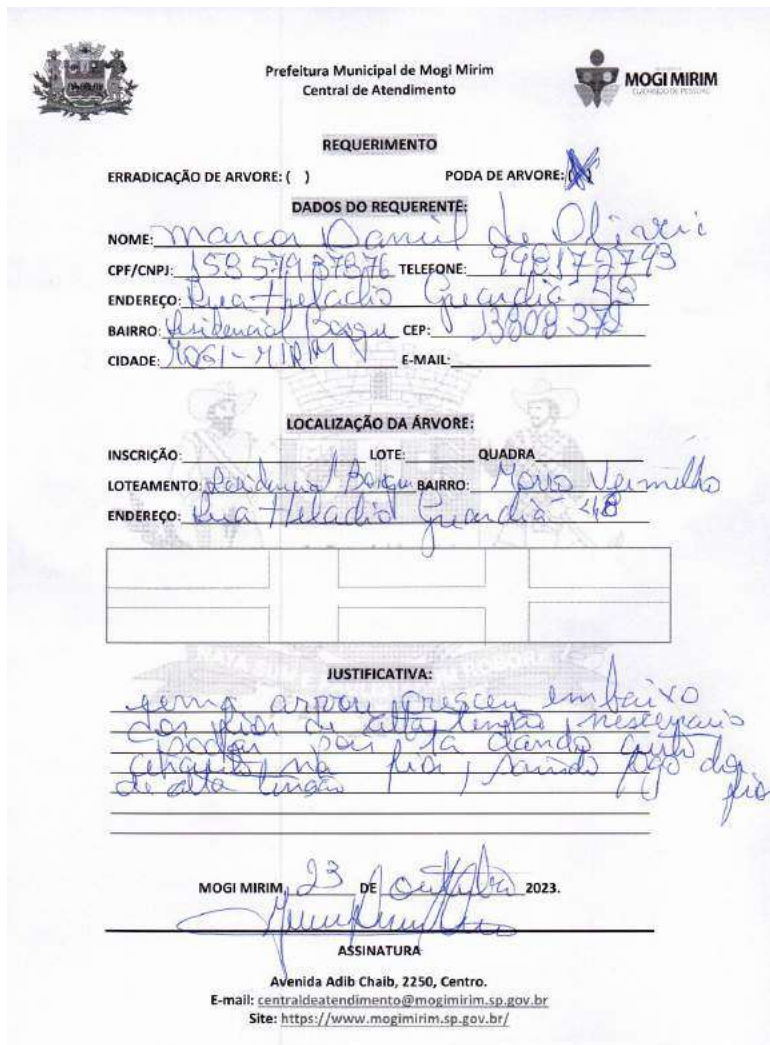 Prefeitura Municipal de Mogi Mirim
Central de Atendimento
MOGI MIRIM
REQUERIMENTO
ERRADICAÇÃO DE ARVORE: ( ) PODA DE ARVORE: (X)
DADOS DO REQUERENTE:
NOME: Marcos Daniel de Oliveira
CPF/CNPJ: 15857937876 TELEFONE: 998172793
ENDEREÇO: Rua Heladio Guardia 48
BAIRRO: Residencial Bosque CEP: 13808 372
CIDADE: MOGI-MIRIM E-MAIL:
LOCALIZAÇÃO DA ÁRVORE:
INSCRIÇÃO: LOTE: QUADRA
LOTEAMENTO: Residencial Bosque BAIRRO: Morro Vermelho
ENDEREÇO: Rua Heladio Guardia 48
JUSTIFICATIVA:
arvore cresceu em baixo
dos fios de alta tenção,
podar pois ta dando curto
na fios, saindo fogo dos
de alta tenção fios
MOGI MIRIM, 23 DE Outubro 2023.
ASSINATURA
Avenida Adib Chaib, 2250, Centro.
E-mail: centraldeatendimento@mogimirim.sp.gov.br
Site: https://www.mogimirim.sp.gov.br/